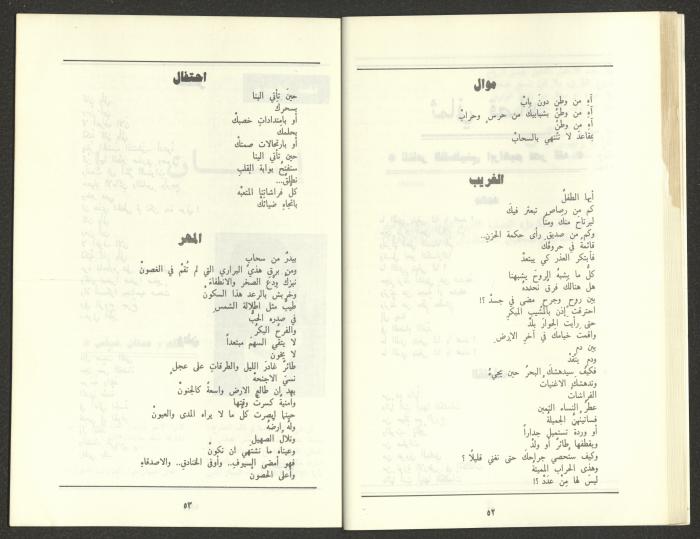 موال
آهِ من وطنٍ دونَ بابْ
آهِ من وطنٍ بشبابيكَ من حرسٍ وحرابْ
آهِ من وطنٍ
بمقاعدَ لا تنتهي بالسحابْ
الغريب
أيها الطفلُ
كم من رصاصٍ تبعثر فيكَ
ليرتاحَ منك ومنّا
وكم من صديقٍ رأى حكمة الحزنِ..
قائمةً في حروفكَ
فأبتكر العذر كي يبتعدْ
كلُّ ما يشبهُ الروحَ يشبهنا
هل هنالك فرقٌ نحددهُ
بين روحٍ وجرحٍ مضى في جسدْ ؟!
احترقتَ إذن بالمشيب المبكرِ
حتى رأيتَ الجوارَ بلدْ
وأقمت خيامكَ في آخرِ الارضِ
بين دمٍ
ودمٍ يتّقدْ
فكيف سيدهشكَ البحرُ حين يجيءُ
وتدهشك الاغنياتُ
الفراشات
عطرُ النساء الثمين
فساتينهنَّ الجميلةُ
أو وردةٌ تستميلُ جداراً
ويقطفها طائرٌ أو ولدْ
وكيف ستُحصي جراحكَ حتى نغني قليلاً ؟
وهذى الحراب المميتةُ
ليسَ لها مِنْ عَدَدْ ؟!
٥٢
احتفال
حينَ تأتي الينا
بسحركَ
أو بامتداداتِ خصبكْ
بحلمكَ
أو بارتجالات صمتكْ
حين تأتي الينا
ستفتحُ بوابة القلبِ
نطلقُ...
كلَّ فراشاتِنا المتعبَهْ
باتجاهِ ضيائكْ
المهر
بيدرٌ من سحابٍ
ومن برقِ هذي البراري التي لم تُقمْ في الغصونْ
نيزكٌ ودّعَ الصخرَ والانطفاءَ
وخربشَ بالرعد هذا السكونْ
طيبٌ مثل اطلالة الشمسِ
في صدره الحبُّ
والفرحُ البكرُ
لا يتّقي السهمَ مبتعداً
لا يخون
طائرٌ غادرَ الليل والطرقاتِ على عجلٍ
نسيَ الاجنحهْ
بعد ان طالع الارض واسعةً كالجنونْ
وامنيةً كسرتْ وقتَها
حينما ابصرت كلَّ ما لا يراه المدى والعيونْ
ولهُ ارضُهُ
وتلالُ الصهيل
وعيناه ما تشتهي ان نكونْ
فهو أمضى السيوفِ.. وأوفى الخنادق.. والاصدقاءِ
وأعلى الحصون
٥٣